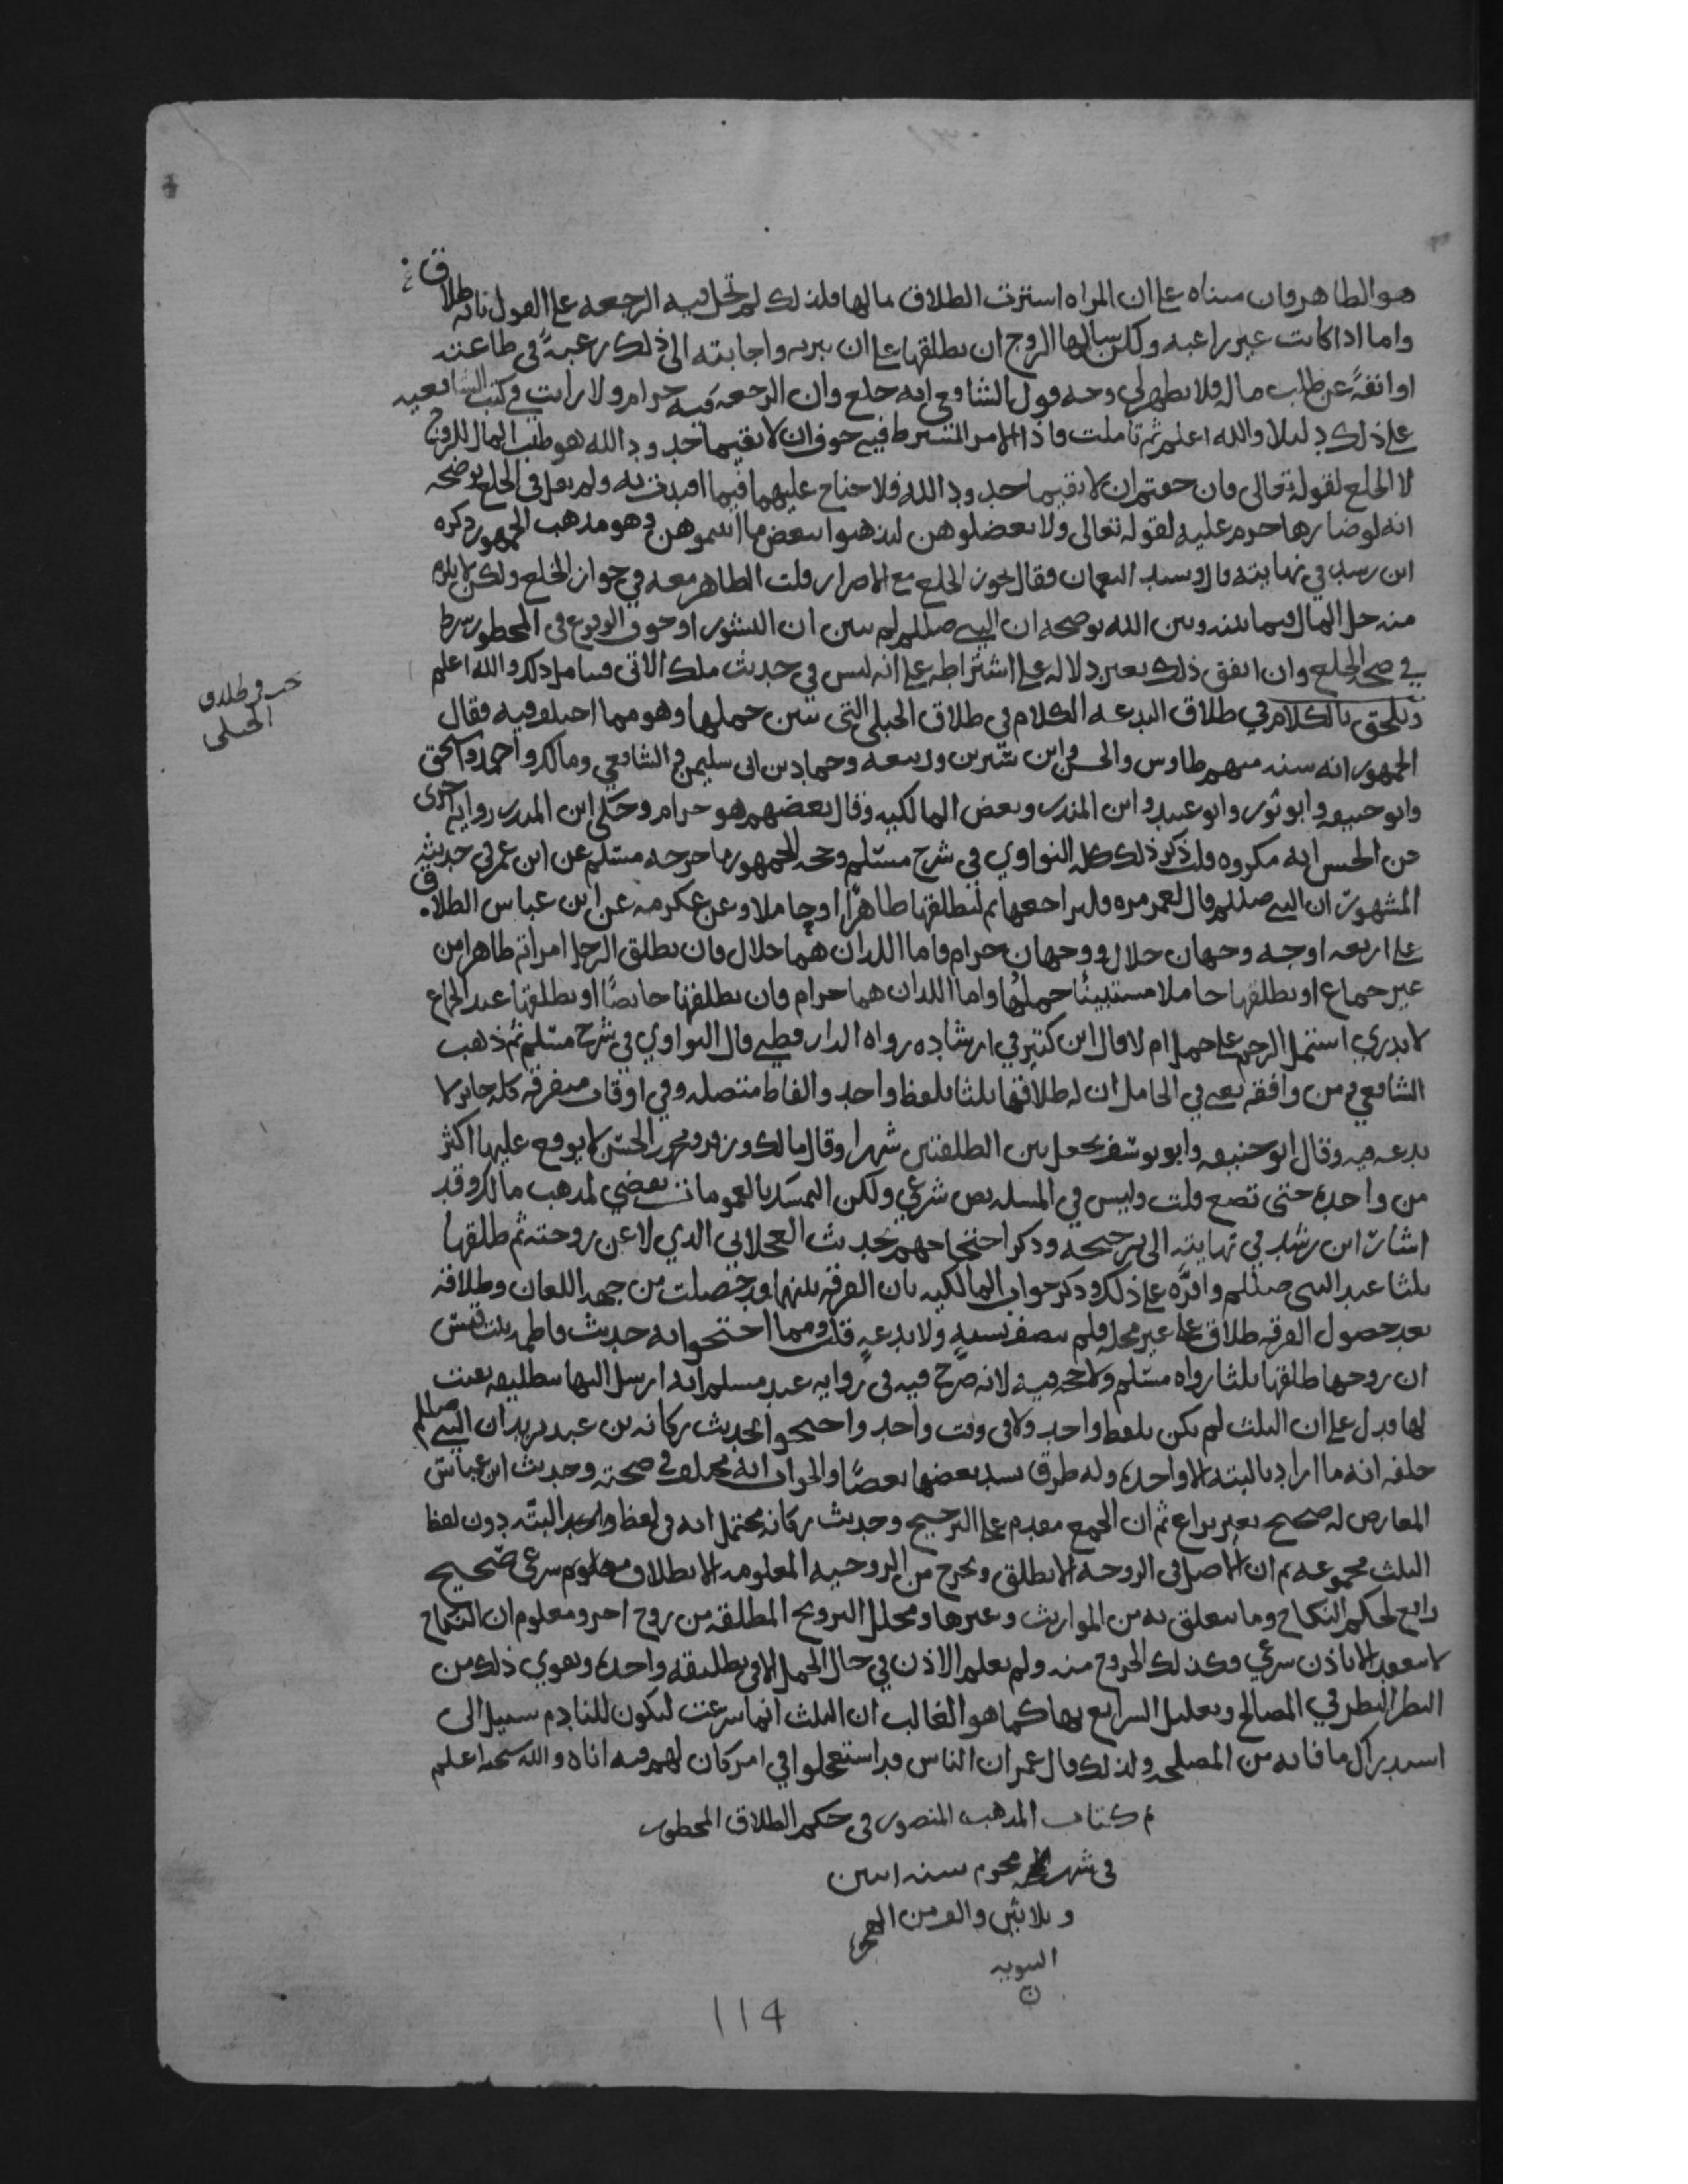 هو الظاهر فان مبناه على ان المراه اشترت الطلاق بمالها فلذلك لم تحل فيه الرجعه على القول بانه طلاق
واما اذا كانت غير راغبه ولكن سالها الزوج ان يطلقها على ان تبريه واجابته الى ذلك رغبةً في طاعته
او انفةً عن طلب ماله فلا يظهر لي وجه قول الشافعي انه خلع وان الرجعه فيه حرام ولا رايت في كتب الشافعيه
على ذلك دليلا والله اعلم ثم تاملت فاذا الامر المشترط فيه خوف ان لا يقيما حدود الله هو طيب المال للزوج
لا الخلع لقوله تعالى فان خفتم ان لا يقيما حدود الله فلا جناح عليهما فيما افتدت به ولم يقل في الخلع يوضحه
انه لو ضارها حرم عليه لقوله تعالى ولا تعضلوهن لتذهبوا ببعض ما اتيتموهن وهو مذهب الجمهور ذكره
ابن رشد في نهايته قال وشذ النعمان فقال يجوز الخلع مع الاضرار قلت الظاهر معه في جواز الخلع ولكن لا يلزم
منه حل المال فيما بينه وبين الله يوضحه ان النبي صللم لم يبين ان النشوز او خوف الوقوع في المحظور شرط
في صحة الخلع وان اتفق ذلك بغير دلاله على اشتراطه على انه ليس في حديث ملك الاتي فتامل ذلك والله اعلم
ويلحق بالكلام في طلاق البدعه الكلام في طلاق الحبلى التي تبين حملها وهو مما اختلف فيه فقال
الجمهور انه سنه منهم طاوس والحسن وابن سيرين وربيعه وحماد بن ابي سليمن والشافعي ومالك واحمد واسحق
وابو حنيفه وابو ثور وابو عبيد وابن المنذر وبعض المالكيه وقال بعضهم هو حرام وحكى ابن المنذر روايه اخرى
عن الحسن انه مكروه ذكر ذلك كله النواوي في شرح مسلم وحجه الجمهور ما خرجه مسلم عن ابن عمر في حديثه
المشهور ان النبي صللم قال لعمر مره فليراجعها ثم ليطلقها طاهرًا او حاملا وعن عكرمه عن ابن عباس الطلاق
على اربعه اوجه وجهان حلال ووجهان حرام فاما اللذان هما حلال فان يطلق الرجل امراته طاهرا من
غير جماع او يطلقها حاملا مستبينًا حملها واما اللذان هما حرام فان يطلقها حائضًا او يطلقها عند الجماع
لا يدري اشتمل الرحم على حمل ام لا قال ابن كثير في ارشاده رواه الدارقطني قال النواوي في شرح مسلم ثم ذهب
الشافعي ومن وافقه يعني في الحامل ان له طلاقها ثلثا بلفظ واحد والفاظ متصله وفي اوقات متفرقه كله جائز لا
بدعه فيه وقال ابو حنيفه وابو يوسف يجعل بين الطلقتين شهرا وقال مالك وزفر ومحمد بن الحسن لا يوقع عليها اكثر
من واحده حتى تضع قلت وليس في المسله نص شرعي ولكن التمسك بالعمومات يقضي لمذهب مالك وقد
اشار ابن رشد في نهايته الى ترجيحه وذكر احتجاجهم بحديث العجلاني الذي لاعن زوجته ثم طلقها
ثلثا عند النبي صللم واقرَّه على ذلك وذكر جواب المالكيه بان الفرقه بينهما قد حصلت من جهه اللعان وطلاقه
بعد حصول الفرقه طلاق على غير محله فلم يتصف بسنه ولا بدعه قلت ومما احتجوا به حديث فاطمه بنت قيس
ان زوجها طلقها ثلثا رواه مسلم ولا حجه فيه لانه صرح فيه في روايه عند مسلم انه ارسل اليها بتطليقه بقيت
لها فدل على ان الثلث لم يكن بلفظ واحد ولا في وقت واحد واحتجوا بحديث ركانه بن عبد يزيد ان النبي صللم
حلفه انه ما اراد بالبته الا واحده وله طرق يشد بعضها بعضًا والجواب انه مختلف في صحته وحديث ابن عباس
المعارض له صحيح بغير نزاع ثم ان الجمع مقدم على الترجيح وحديث ركانه يحتمل انه في لفظ واحد البته دون لفظ
الثلث مجموعه ثم ان الاصل في الزوجه لا تطلق وتخرج من الزوجيه المعلومه الا بطلاق معلوم شرعي صحيح
رافع لحكم النكاح وما يتعلق به من المواريث وغيرها ومحلل التزويج المطلقه من زوج اخر ومعلوم ان النكاح
لا ينعقد الا باذن شرعي وكذلك الخروج منه ولم نعلم الاذن في حال الحمل الا في تطليقه واحده ويقوي ذلك من
النظر النظر في المصالح وتعليل الشرايع بها كما هو الغالب ان الثلث انما شرعت ليكون للنادم سبيل الى
استدراك ما فاته من المصلحه ولذلك قال عمر ان الناس قد استعجلوا في امر كان لهم فيه اناه والله سبحنه اعلم
تم كتاب المذهب المنصور في حكم الطلاق المحظور
في شهر محرم سنه اثنين
وثلاثين والف من الهجره
النبويه
ن
114
في طلاق
الحبلى